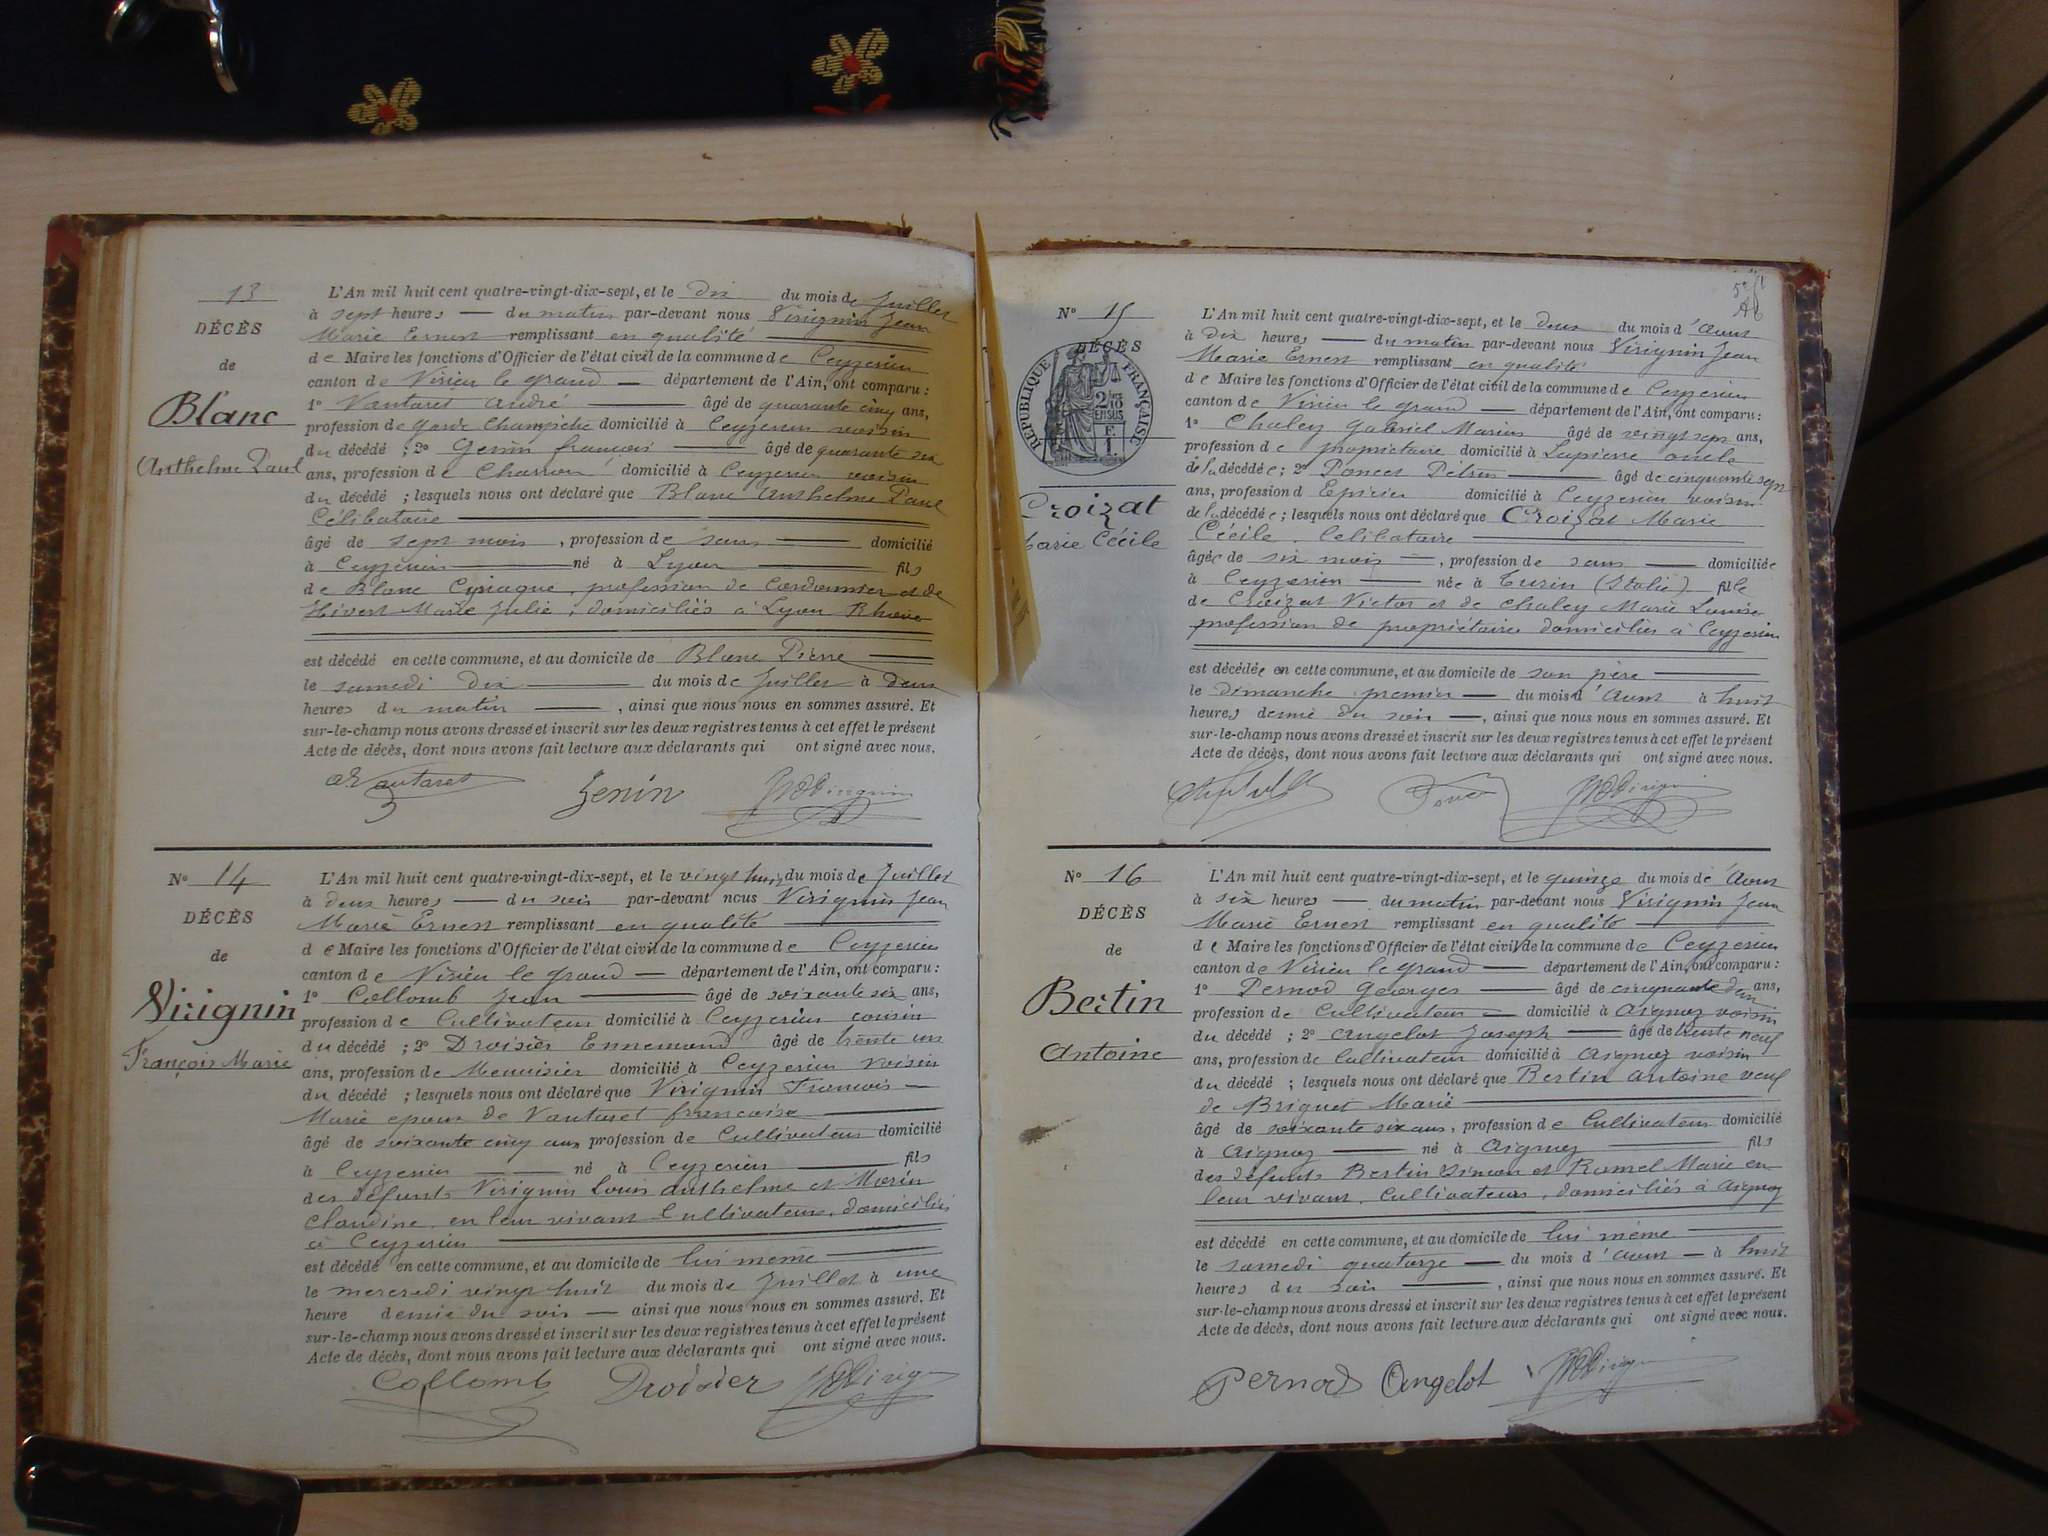 13
DÉCÈS
de
Blanc
Anthelme Paul
L'An mil huit cent quatre-vingt-dix-sept, et le dix du mois de Juillet
à sept heures du matin par-devant nous Virignin Jean
Marie Ernest remplissant en qualité
de Maire les fonctions d'Officier de l'état civil de la commune de Ceyzerieu
canton de Virieu le grand département de l'Ain, ont comparu :
1° Vantaret André âgé de quarante cinq ans,
profession de garde champêtre domicilié à Ceyzerieu voisin
du décédé ; 2° Genin françois âgé de quarante six
ans, profession de Charron domicilié à Ceyzerieu voisin
du décédé ; lesquels nous ont déclaré que Blanc Anthelme Paul
Célibataire
âgé de sept mois , profession de sans domicilié
à Ceyzerieu né à Lyon fils
de Blanc Cyriaque, profession de Cordonnier et de
Hivert Marie Julie, domiciliés à Lyon Rhône
est décédé en cette commune, et au domicile de Blanc Pierre
le samedi dix du mois de Juillet à deux
heures du matin , ainsi que nous nous en sommes assuré. Et
sur-le-champ nous avons dressé et inscrit sur les deux registres tenus à cet effet le présent
Acte de décès, dont nous avons fait lecture aux déclarants qui ont signé avec nous.
Vantaret Genin Virignin
N° 14
DÉCÈS
de
Virignin
François Marie
L'An mil huit cent quatre-vingt-dix-sept, et le vingt huit du mois de Juillet
à deux heures du soir par-devant nous Virignin Jean
Marie Ernest remplissant en qualité
de Maire les fonctions d'Officier de l'état civil de la commune de Ceyzerieu
canton de Virieu le grand département de l'Ain, ont comparu :
1° Collomb Jean âgé de soixante six ans,
profession de Cultivateur domicilié à Ceyzerieu cousin
du décédé ; 2° Droisier Ennemond âgé de trente un
ans, profession de Menuisier domicilié à Ceyzerieu voisin
du décédé ; lesquels nous ont déclaré que Virignin François
Marie époux de Vantaret françoise
âgé de soixante cinq ans profession de Cultivateur domicilié
à Ceyzerieu né à Ceyzerieu fils
des défunts Virignin Louis Anthelme et Morin
Claudine en leur vivant Cultivateurs, domiciliés
à Ceyzerieu
est décédé en cette commune, et au domicile de lui même
le mercredi vingt huit du mois de Juillet à une
heure demie du soir ainsi que nous nous en sommes assuré. Et
sur-le-champ nous avons dressé et inscrit sur les deux registres tenus à cet effet le présent
Acte de décès, dont nous avons fait lecture aux déclarants qui ont signé avec nous.
Collomb Droisier Virignin
N° 15
DÉCÈS
RÉPUBLIQUE FRANÇAISE
Croizat
Marie Cécile
L'An mil huit cent quatre-vingt-dix-sept, et le deux du mois d'Aout
à dix heures du matin par-devant nous Virignin Jean
Marie Ernest remplissant en qualité
de Maire les fonctions d'Officier de l'état civil de la commune de Ceyzerieu
canton de Virieu le grand département de l'Ain, ont comparu :
1° Chaley Gabriel Marius âgé de vingt sept ans,
profession de propriétaire domicilié à Lapierre oncle
de la décédée ; 2° Poncet Pétrus âgé de cinquante sept
ans, profession d'Epicier domicilié à Ceyzerieu voisin
de la décédée ; lesquels nous ont déclaré que Croizat Marie
Cécile, Célibataire
âgée de six mois , profession de sans domiciliée
à Ceyzerieu née à Turin (Italie) fille
de Croizat Victor et de Chaley Marie Louise
profession de propriétaires domiciliés à Ceyzerieu
est décédée en cette commune, et au domicile de son père
le dimanche premier du mois d'Aout à huit
heures demie du soir , ainsi que nous nous en sommes assuré. Et
sur-le-champ nous avons dressé et inscrit sur les deux registres tenus à cet effet le présent
Acte de décès, dont nous avons fait lecture aux déclarants qui ont signé avec nous.
Virignin
N° 16
DÉCÈS
de
Bertin
Antoine
L'An mil huit cent quatre-vingt-dix-sept, et le quinze du mois d'Aout
à six heures du matin par-devant nous Virignin Jean
Marie Ernest remplissant en qualité
de Maire les fonctions d'Officier de l'état civil de la commune de Ceyzerieu
canton de Virieu le grand département de l'Ain, ont comparu :
1° Pernod Georges âgé de cinquante deux ans,
profession de Cultivateur domicilié à Aignoz voisin
du décédé ; 2° Angelot Joseph âgé de trente neuf
ans, profession de Cultivateur domicilié à Aignoz voisin
du décédé ; lesquels nous ont déclaré que Bertin Antoine veuf
de Briguet Marie
âgé de soixante six ans, profession de Cultivateur domicilié
à Aignoz né à Aignoz fils
des défunts Bertin Simon et Ramel Marie en
leur vivant, Cultivateurs, domiciliés à Aignoz
est décédé en cette commune, et au domicile de lui même
le samedi quatorze du mois d'Aout à huit
heures du soir , ainsi que nous nous en sommes assuré. Et
sur-le-champ nous avons dressé et inscrit sur les deux registres tenus à cet effet le présent
Acte de décès, dont nous avons fait lecture aux déclarants qui ont signé avec nous.
Pernod Angelot Virignin